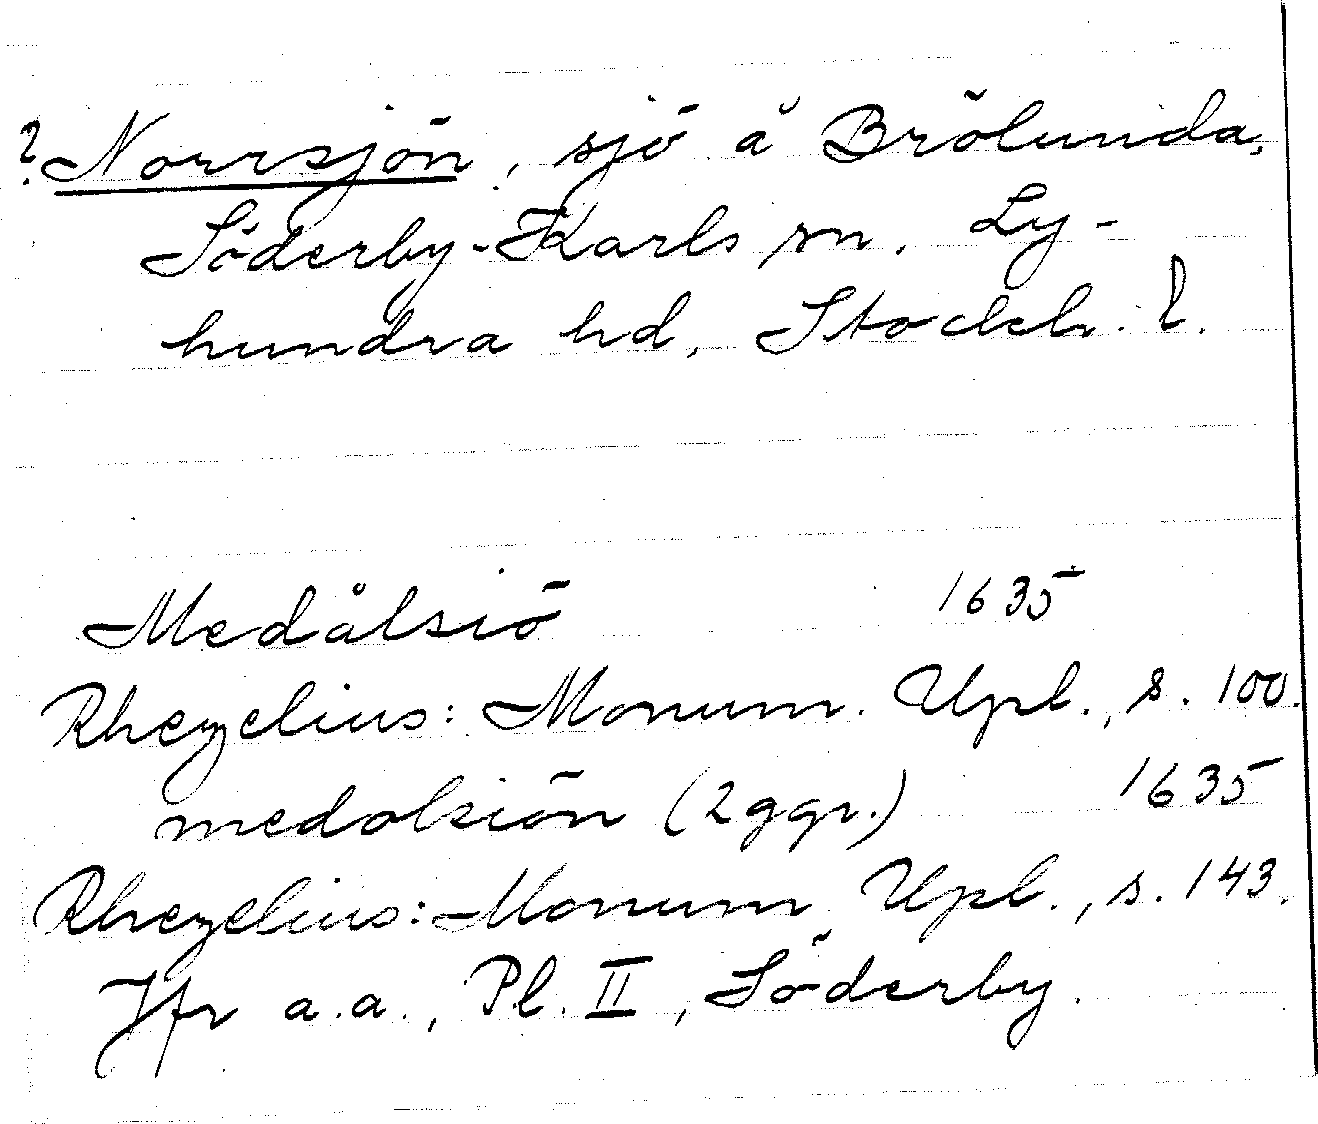 ? Norrsjön, sjö å Brölunda,
Söderby-Karls sn. Ly-
hundra hd, Stockh. l.
Medålsiö 1635
Rhezelius: Monum. Upl., s. 100.
medolsiön (2 ggr.) 1635
Rhezelius: Monum. Upl., s. 143.
Jfr a.a., Pl. II, Söderby.